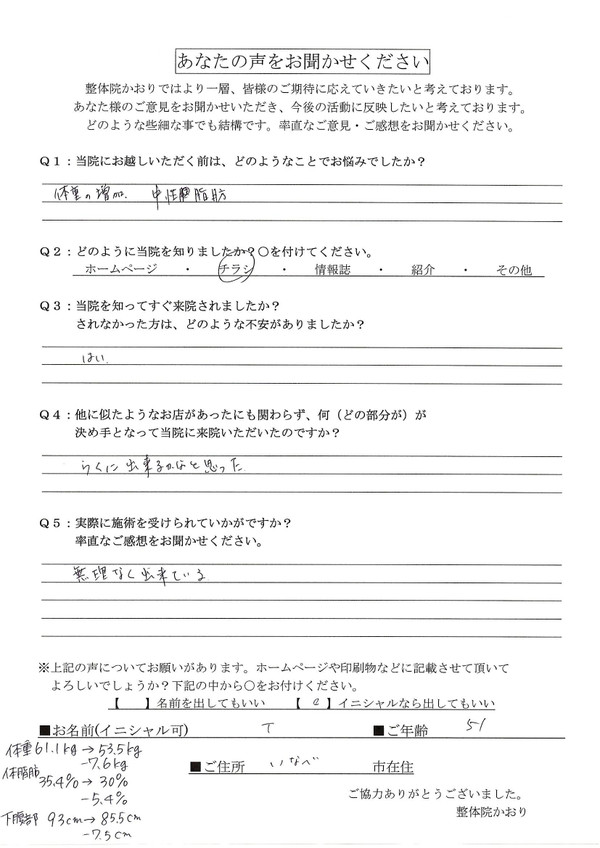 あなたの声をお聞かせください
整体院かおりではより一層、皆様のご期待に応えていきたいと考えております。
あなた様のご意見をお聞かせいただき、今後の活動に反映したいと考えております。
どのような些細な事でも結構です。率直なご意見・ご感想をお聞かせください。
Q1：当院にお越しいただく前は、どのようなことでお悩みでしたか？
体重の増加. 中性脂肪
Q2：どのように当院を知りましたか？〇を付けてください。
ホームページ ・ チラシ ・ 情報誌 ・ 紹介 ・ その他
Q3：当院を知ってすぐ来院されましたか？
されなかった方は、どのような不安がありましたか？
はい.
Q4：他に似たようなお店があったにも関わらず、何（どの部分が）が
決め手となって当院に来院いただいたのですか？
らくに出来るかなと思った.
Q5：実際に施術を受けられていかがですか？
率直なご感想をお聞かせください。
無理なく出来ている
※上記の声についてお願いがあります。ホームページや印刷物などに記載させて頂いて
よろしいでしょうか？下記の中から〇をお付けください。
【 】名前を出してもいい 【 】イニシャルなら出してもいい
■お名前(イニシャル可) T ■ご年齢 51
体重 61.1kg → 53.5kg
-7.6kg
■ご住所 いなべ 市在住
体脂肪 35.4% → 30%
-5.4%
ご協力ありがとうございました。
整体院かおり
下腹部 93cm → 85.5cm
-7.5cm